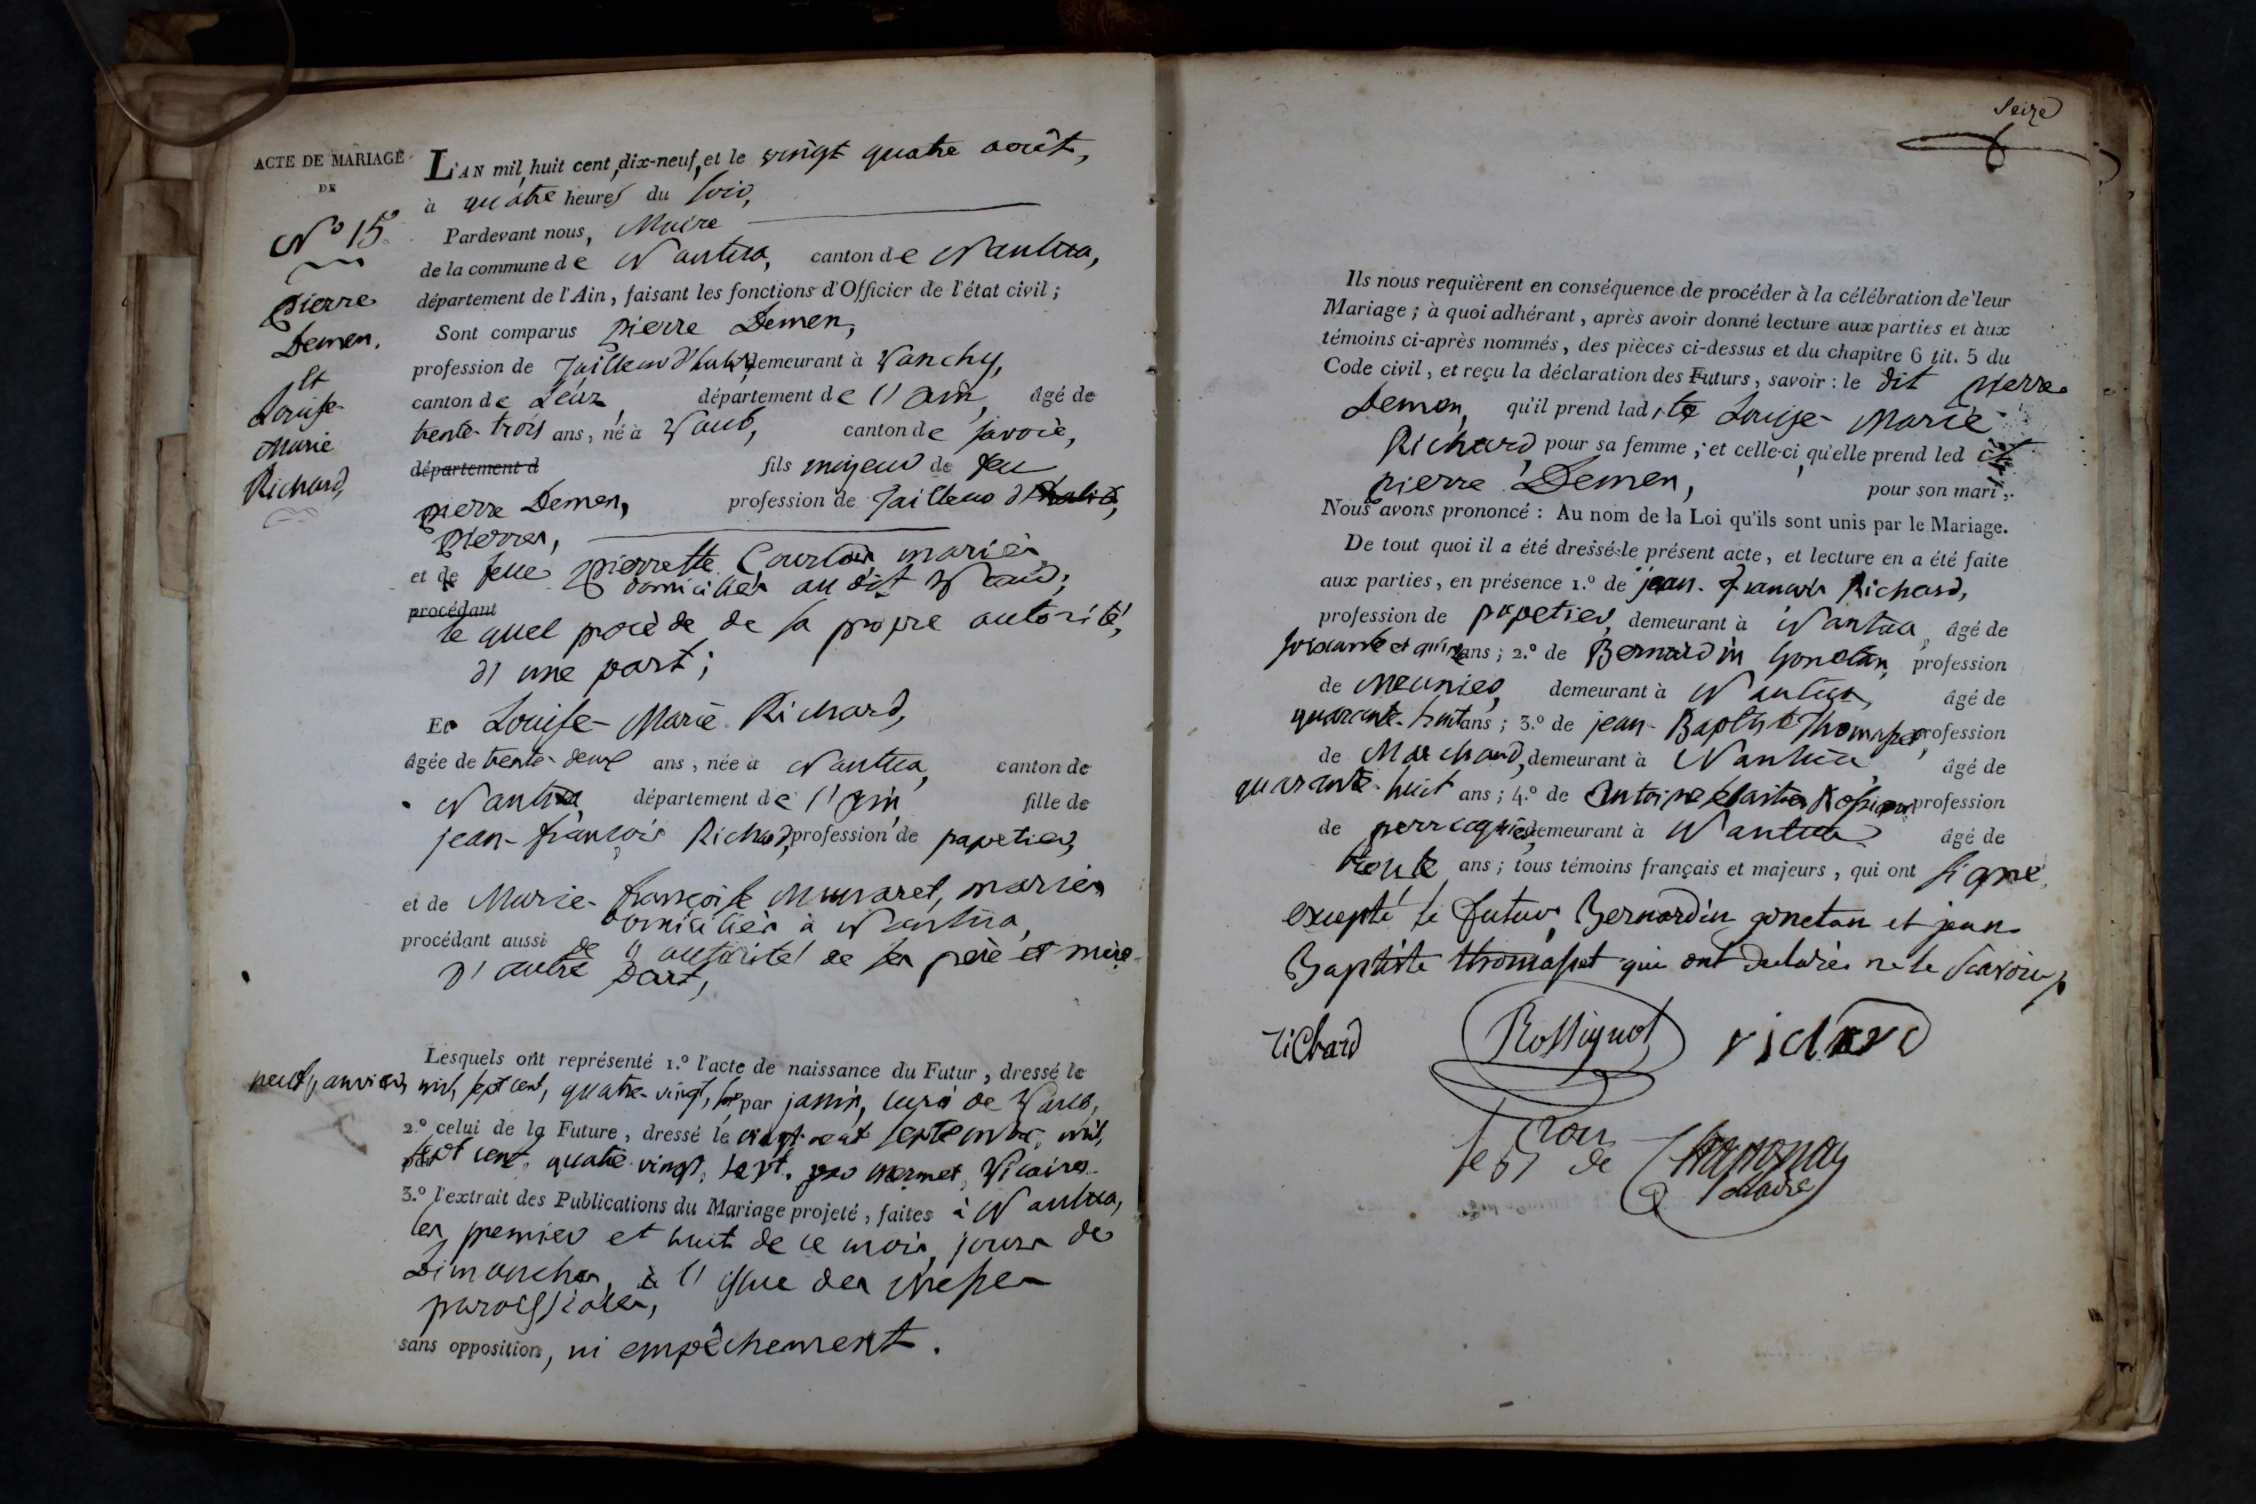 ACTE DE MARIAGE
DE
N.º 15.
pierre
Demen,
et
Louise-
Marie
Richard,
L'AN mil huit cent dix-neuf, et le vingt quatre août,
à quatre heures du soir,
Pardevant nous, Maire
de la commune de Nantua, canton de Nantua,
département de l'Ain, faisant les fonctions d'Officier de l'état civil;
Sont comparus pierre Demen,
profession de Tailleur d'habits, demeurant à Vanchy,
canton de département de l'ain, âgé de
trente-trois ans, né à canton de Savoie,
département d fils majeur de feu
pierre Demen, profession de Tailleur d'habits,
pierres,
et de feue pierrette mariés
domiciliés au dit
procédant
le quel procède de sa propre autorité,
d'une part;
Et Louise-Marie Richard,
âgée de trente-deux ans, née à Nantua, canton de
Nantua, département de l'ain, fille de
jean-françois Richard, profession de papetier,
et de Marie-françoise mariés
domiciliés à Nantua,
procédant aussi de l'autorité de ses père et mère
d'autre part,
Lesquels ont représenté 1.º l'acte de naissance du Futur, dressé le
neuf janvier, mil, sept cent, quatre-vingt, par janin, curé de
2.º celui de la Future, dressé le vingt-neuf septembre, mil,
sept cent, quatre-vingt, sept, par mermet, Vicaire
3.º l'extrait des Publications du Mariage projeté, faites à Nantua,
les premier et huit de ce mois, jours de
Dimanches, à l'issue des
paroissiales,
sans opposition, ni empêchement.
seize
Ils nous requièrent en conséquence de procéder à la célébration de leur
Mariage; à quoi adhérant, après avoir donné lecture aux parties et aux
témoins ci-après nommés, des pièces ci-dessus et du chapitre 6 tit. 5 du
Code civil, et reçu la déclaration des Futurs, savoir: le dit pierre
Demen, qu'il prend ladite Louise-Marie
Richard, pour sa femme; et celle-ci, qu'elle prend led it
pierre Demen, pour son mari,
Nous avons prononcé: Au nom de la Loi qu'ils sont unis par le Mariage.
De tout quoi il a été dressé le présent acte, et lecture en a été faite
aux parties, en présence 1.º de jean-françois Richard,
profession de papetier, demeurant à Nantua, âgé de
soixante et quinze ans; 2.º de Bernardin gonetan, profession
de meunier, demeurant à Nantua, âgé de
quarante-huit ans; 3.º de jean-Baptiste Thomasset, profession
de Marchand, demeurant à Nantua âgé de
quarante-huit ans; 4.º de antoine Rossignol, profession
de perruquier, demeurant à Nantua âgé de
trente ans; tous témoins français et majeurs, qui ont signé,
excepté le futur, Bernardin gonetan et jean
Baptiste thomasset qui ont déclarés ne le savoir
richard Rossignol richard
de
maire